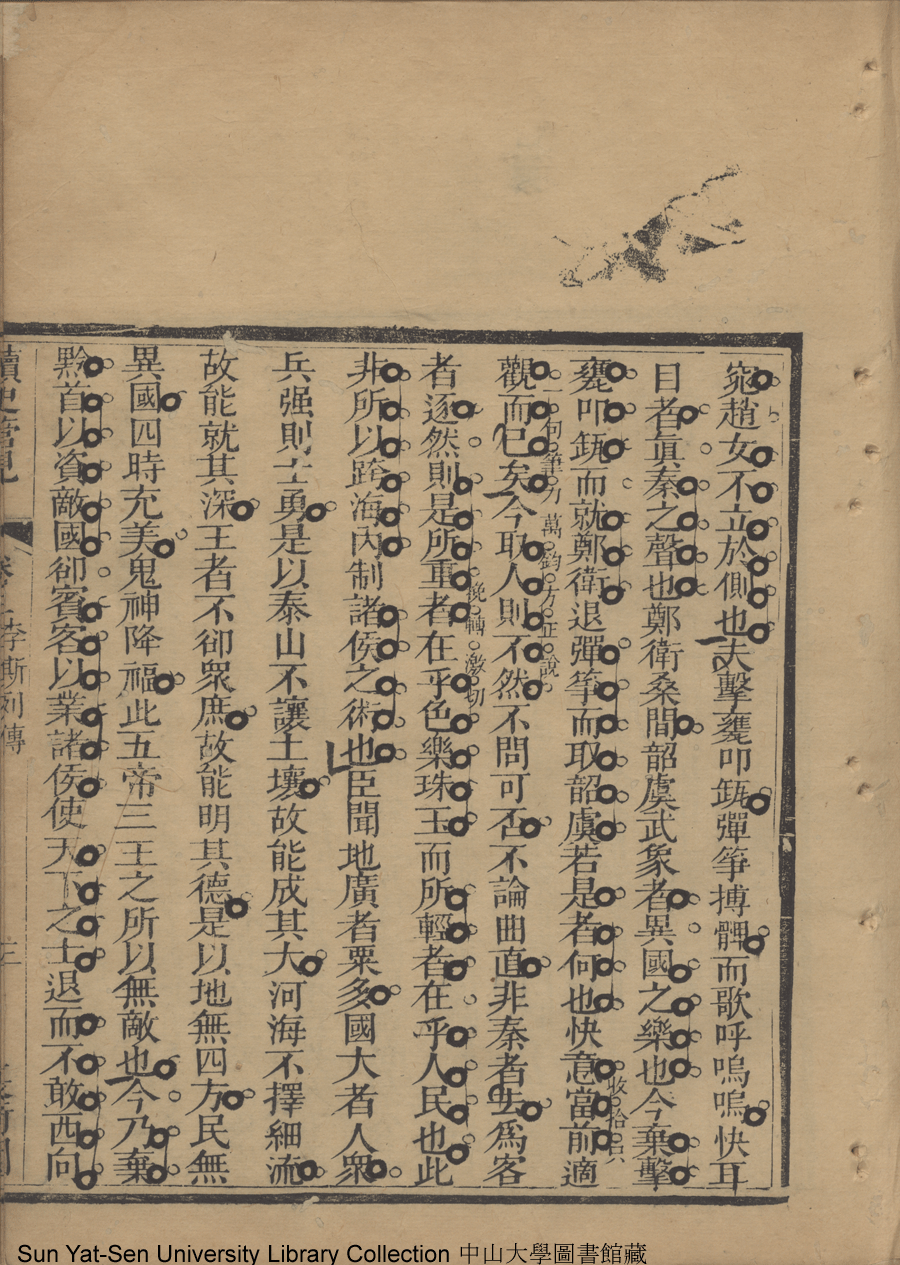 窕趙女不立於側也夫擊甕叩缻彈筝搏髀而歌呼嗚嗚快耳
目者眞秦之聲也鄭衛桑間韶虞武象者異國之樂也今棄擊
甕叩缻而就鄭衛退彈筝而取韶虞若是者何也快意當前適
收拾
觀而已矣今取人則不然不問可否不論曲直非秦者去爲客
句筆力萬鈞方正說
者逐然則是所重者在乎色樂珠玉而所輕者在乎人民也此
輓轉激切
非所以跨海內制諸侯之術也臣聞地廣者粟多國大者人衆
兵强則士勇是以泰山不讓土壤故能成其大河海不擇細流
故能就其深王者不卻衆庶故能明其德是以地無四方民無
異國四時充美鬼神降福此五帝三王之所以無敵也今乃棄
黔首以資敵國卻賓客以業諸侯使天下之士退而不敢西向
讀史管見 李斯列傳
Sun Yat-Sen University Library Collection 中山大學圖書館藏